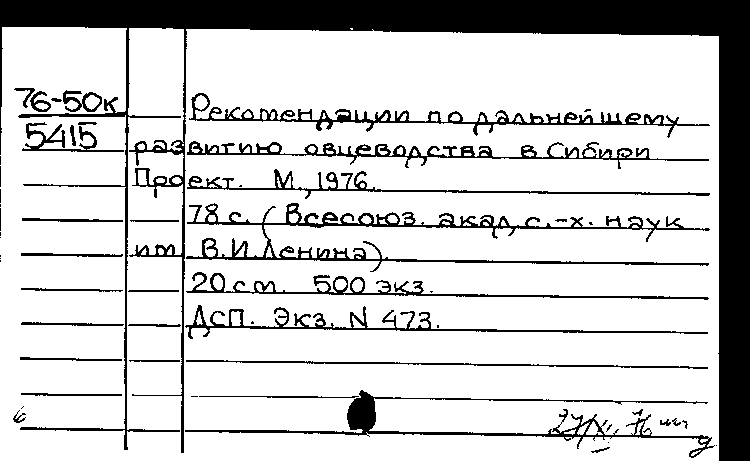 76-50к
5415
Рекомендации по дальнейшему
развитию овцеводства в Сибири
Проект. М., 1976.
78 с. (Всесоюз. акад. с.-х. наук
им. В.И.Ленина).
20 см. 500 экз.
ДСП. Экз. N 473.
27/XII 76